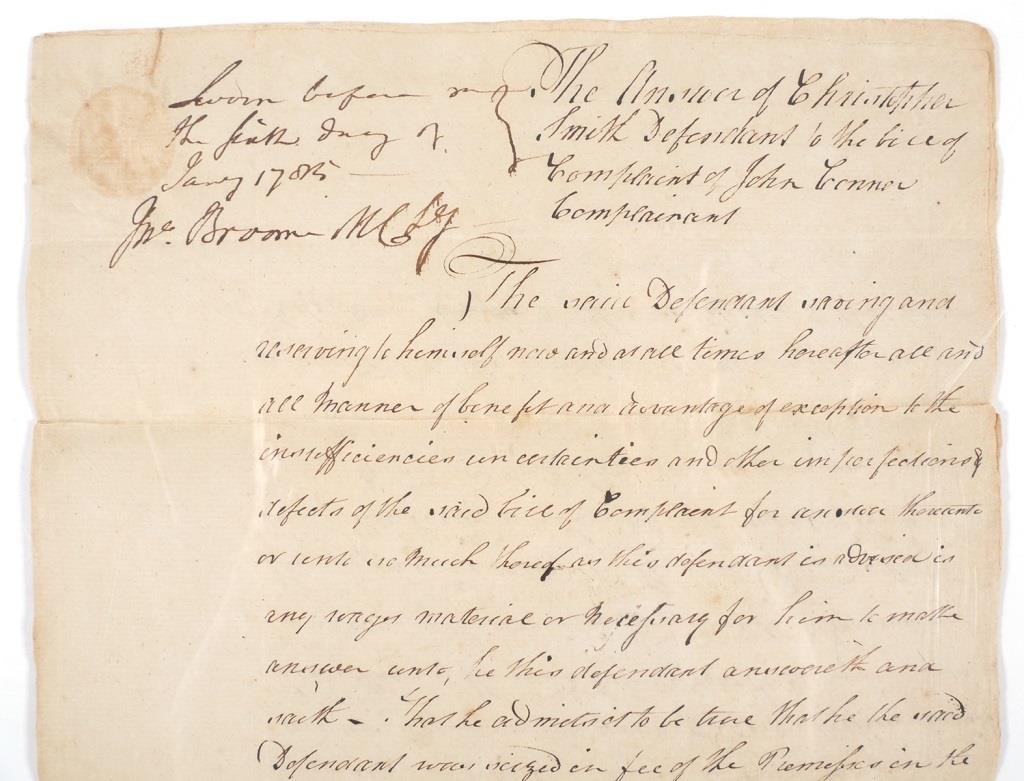 Sworn before me
the sixth day of
Jany 1785
Jno. Broome M C
The Answer of Christopher
Smith Defendant to the bill of
Complaint of John Conner
Complainant
The said Defendant saving and
reserving to himself now and at all times hereafter all and
all manner of benefit and advantage of exception to the
insufficiencies uncertainties and other imperfections &
defects of the said bill of Complaint for answer thereunto
or unto so much thereof as this defendant is advised is
any ways material or necessary for him to make
answer unto, he this defendant answereth and
saith - That he admits it to be true that he the said
Defendant was seized in fee of the Premisses in the